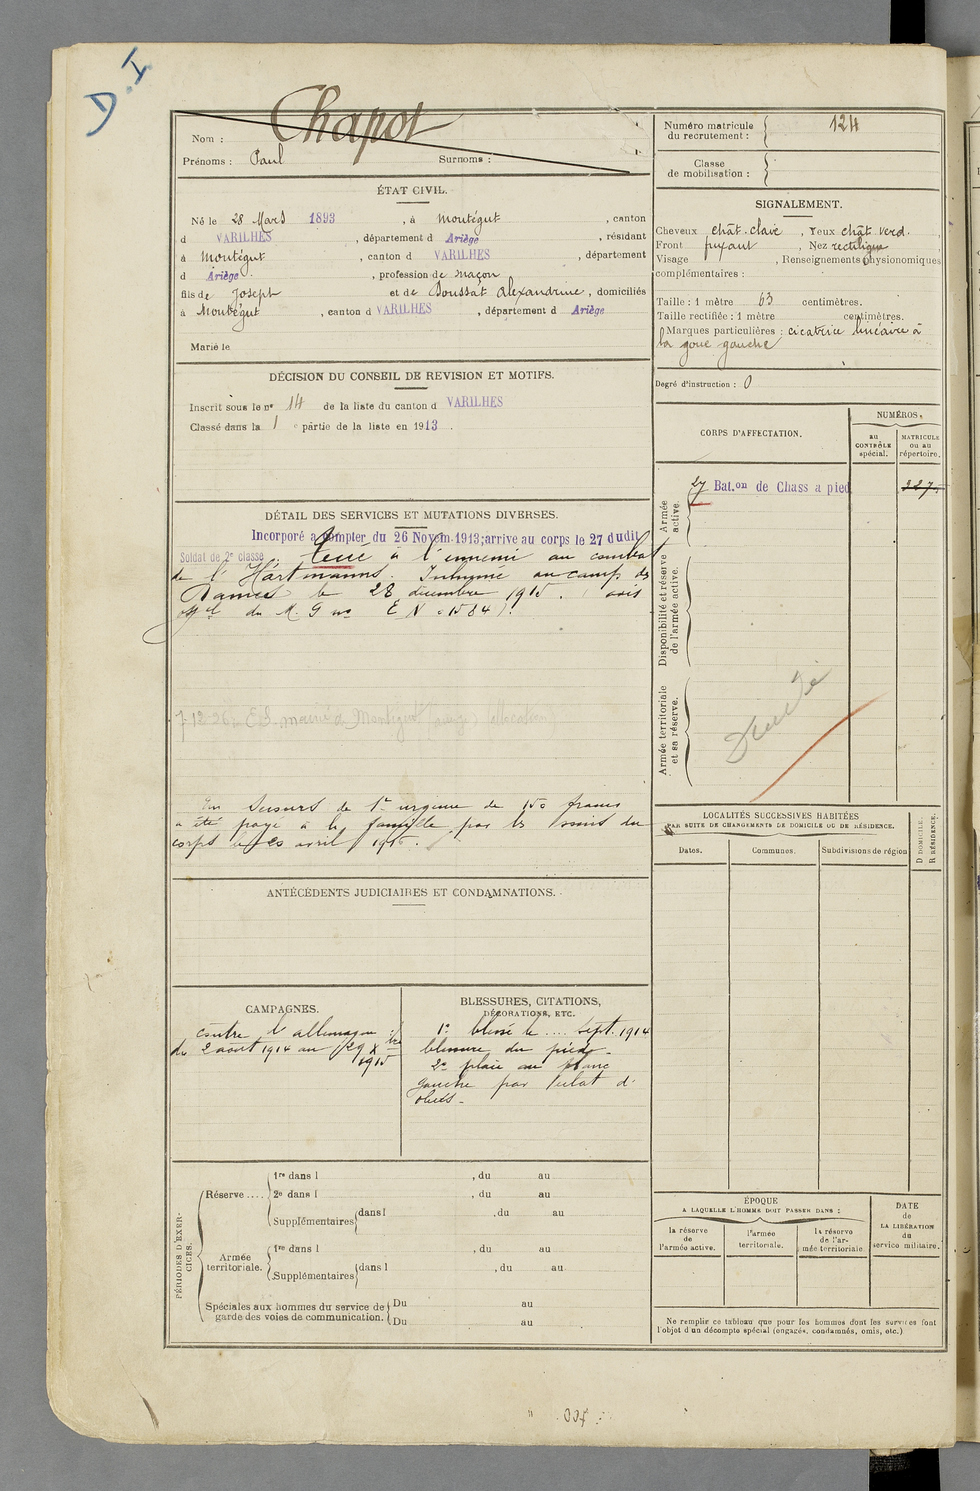 D.I
Nom : Chapot
Prénoms : Paul Surnoms :
ÉTAT CIVIL.
Né le 28 Mars 1893, à Montégut, canton
d VARILHES, département d Ariège, résidant
à Montégut, canton d VARILHES, département
d Ariège, profession de maçon
fils de Joseph et de Boussat Alexandrine, domiciliés
à Montégut, canton d VARILHES, département d Ariège
Marié le
DÉCISION DU CONSEIL DE REVISION ET MOTIFS.
Inscrit sous le nº 14 de la liste du canton d VARILHES
Classé dans la 1 e partie de la liste en 1913.
DÉTAIL DES SERVICES ET MUTATIONS DIVERSES.
Incorporé a compter du 26 Novem. 1913; arrivé au corps le 27 dudit
Soldat de 2e classe. Tué à l'ennemi au combat
de l'Hartmanns. Inhumé au camp de
le 28 décembre 1915. (avis
du M. G nº E N 1584)
7-12-26 E.S. mairie de Montégut allocation
Un secours de 1re urgence de 150 francs
a été payé à la famille par les soins du
corps le 20 avril 1916.
ANTÉCÉDENTS JUDICIAIRES ET CONDAMNATIONS.
CAMPAGNES.
contre l'allemagne :
du 2 août 1914 au 29 Xbre
1915
BLESSURES, CITATIONS,
DÉCORATIONS, ETC.
1º blessé le .... Sept. 1914
blessure du pied.
2º plaie au flanc
gauche par éclat d'
obus.
PÉRIODES D'EXERCICES.
Réserve .... 1re dans l , du au
2e dans l , du au
Supplémentaires dans l , du au
Armée territoriale. 1re dans l , du au
Supplémentaires dans l , du au
Spéciales aux hommes du service de garde des voies de communication. Du au
Du au
Numéro matricule
du recrutement : 124
Classe
de mobilisation :
SIGNALEMENT.
Cheveux chât. clair, Yeux chât. verd.
Front fuyant, Nez rectiligne
Visage , Renseignements physionomiques
complémentaires :
Taille : 1 mètre 63 centimètres.
Taille rectifiée : 1 mètre centimètres.
Marques particulières : cicatrice linéaire à
la joue gauche
Degré d'instruction : 0
CORPS D'AFFECTATION.
NUMÉROS.
au
CONTRÔLE
spécial.
MATRICULE
ou au
répertoire.
Armée
active.
27 Bat.on de Chass a pied
Disponibilité et réserve
de l'armée active.
Armée territoriale
et sa réserve.
LOCALITÉS SUCCESSIVES HABITÉES
PAR SUITE DE CHANGEMENTS DE DOMICILE OU DE RÉSIDENCE.
Dates.
Communes.
Subdivisions de région
D DOMICILE.
R RÉSIDENCE.
ÉPOQUE
A LAQUELLE L'HOMME DOIT PASSER DANS :
la réserve
de
l'armée active.
l'armée
territoriale.
la réserve
de l'ar-
mée territoriale.
DATE
de
LA LIBÉRATION
du
service militaire.
Ne remplir ce tableau que pour les hommes dont les services font
l'objet d'un décompte spécial (engagés, condamnés, omis, etc.)